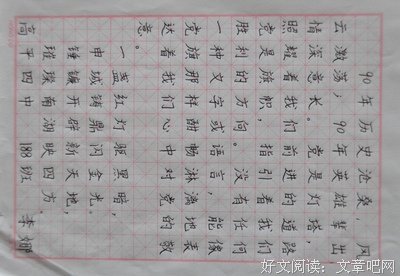 90年历史沧桑，风
云激荡，90年英雄辈出，
情深意长。党是灯塔，
照着我们前进的道路
党是旗帜，指引着我们
胜利的方向。没有任何
一种文字或语言，能像
旗那样酣畅淋漓地表
达着我们心中对党的敬
意
一盏红灯驱黑暗，
申城鼎闪金光。
锤镰开辟新天地，
璀璨南湖映四方。
高平四中 188班 李娜
好文阅读：文章吧网